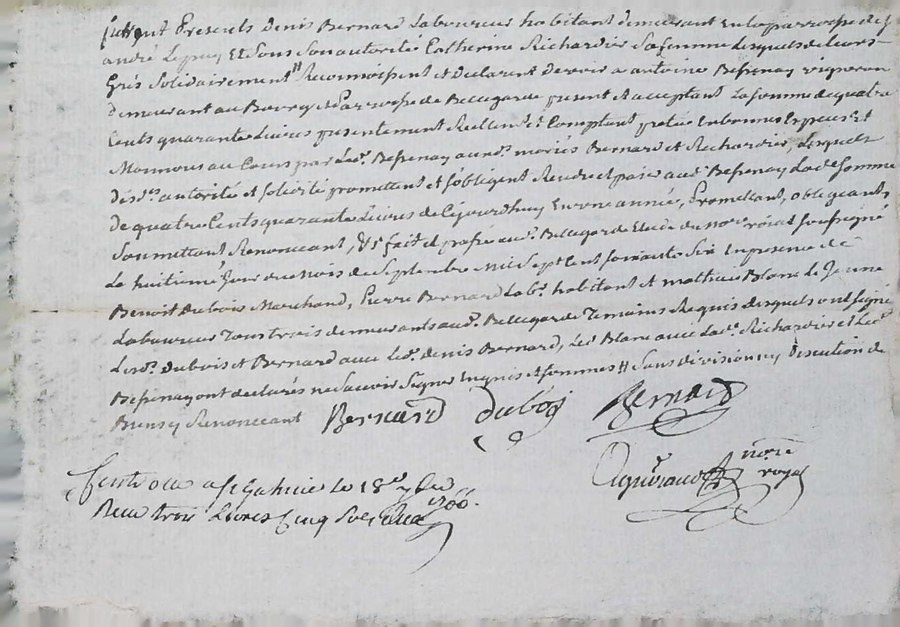 furent Presents denis Bernard Laboureur habitant demeurant En la parroisse de St
andré Lepuy Et Sous Son autorité Catherine Richardier Sa femme Lesquels de Leurs
Grés Solidairement # Reconnoissent et declarent devoir a antoine Bessenay vigneron
demeurant au Bourg et Parroisse de Bellegarde present et acceptant La Somme de quatre
Cents quarante Livres presentement Reellemt et Comptant pretée En bonnes Especes et
Monnoye au Cours par Led. Bessenay auxd. mariés Bernard et Richardier, Lesquels
desd. autorité et Solidité promettent et s'obligent Rendre et paier aud. Bessenay Lad. Somme
de quatre Cents quarante Livres de Cejourdhuy En une année, Promettant, obligeants,
Soumettant Renonceant, &c fait et passé aud. Bellegarde Etude du nore. roial soussigné
Le huitieme Jour du Mois de Septembre Mil Sept Cent soixante Six En presence de
Benoit Dubois Marchand, Pierre Bernard Labr. habitant et mathieu Blanc Le Jeune
Laboureur Tous trois demeurants aud. Bellegarde Temoins Requis desquels ont signé
Lesd. Dubois et Bernard avec Led. denis Bernard, Led. Blanc avec Lad. Richardier et Led.
Bessenay ont declarés ne Savoir Signer Enquis et sommés # Sans division ny discution de
Biens y Renonceant Bernard dubois Bernard
nore
roial
Controllé a St Galmie le 18e 7bre 1766.
Reçu trois Livres Cinq Sols